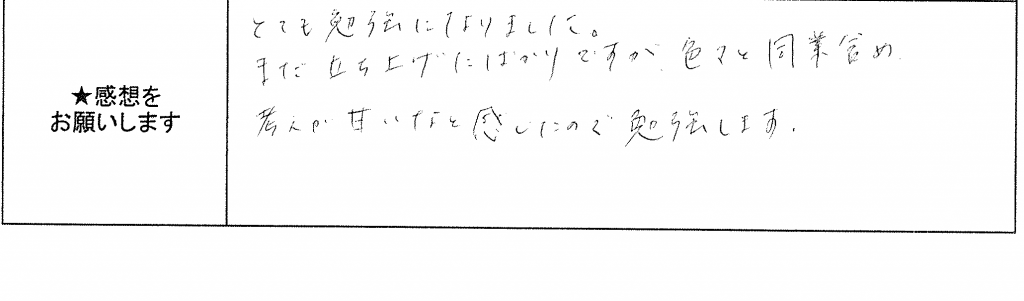 とても勉強になりました。
まだ立ち上げたばかりですが、色々と同業含め
★感想を
お願いします
考えが甘いなと感じたので勉強します.